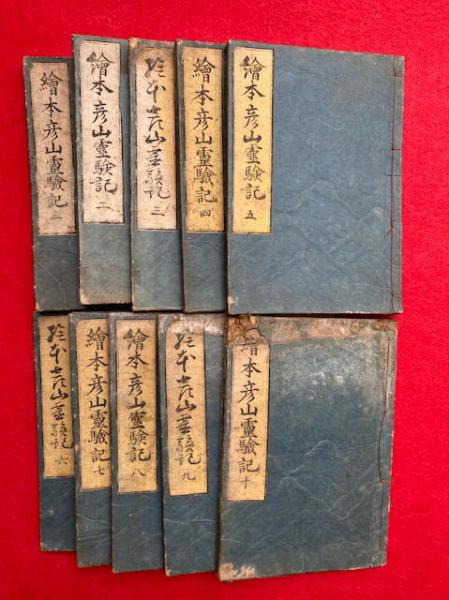 繪本彦山靈驗記 一
繪本彦山靈驗記 二
絵本彦山霊験記 三
繪本彦山靈驗記 四
繪本彦山靈驗記 五
絵本彦山霊験記 六
繪本彦山靈驗記 七
繪本彦山靈驗記 八
絵本彦山霊験記 九
繪本彦山靈驗記 十